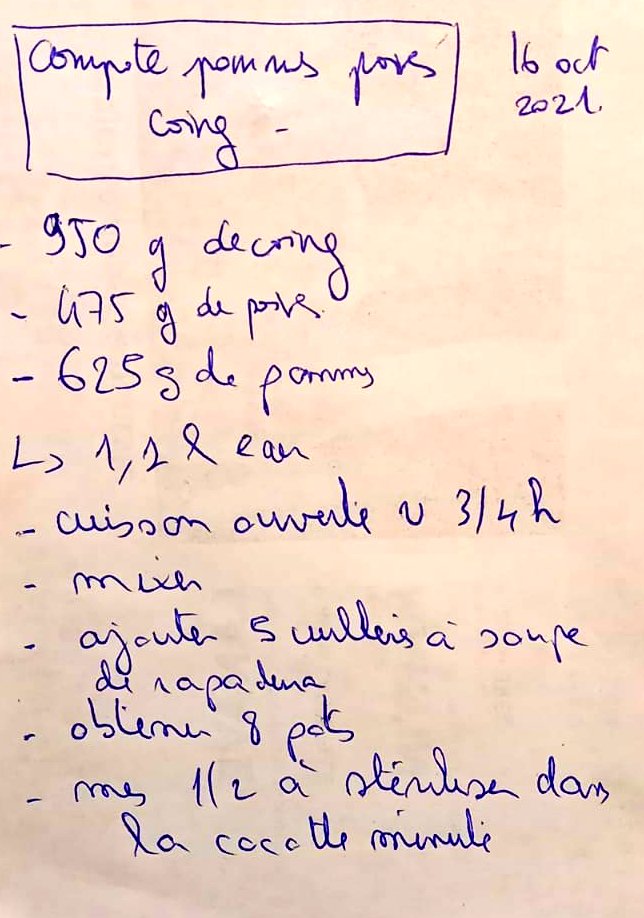 Compote pommes poires
coing -
16 oct
2021.
- 950 g de coing
- 475 g de poires
- 625 g de pommes
↳ 1,2 l eau
- cuisson ouverte ~ 3/4 h
- mixer
- ajouter 5 cuillers à soupe
de rapadura
- obtenu 8 pots
- mis 1/2 à stériliser dans
la cocotte minute